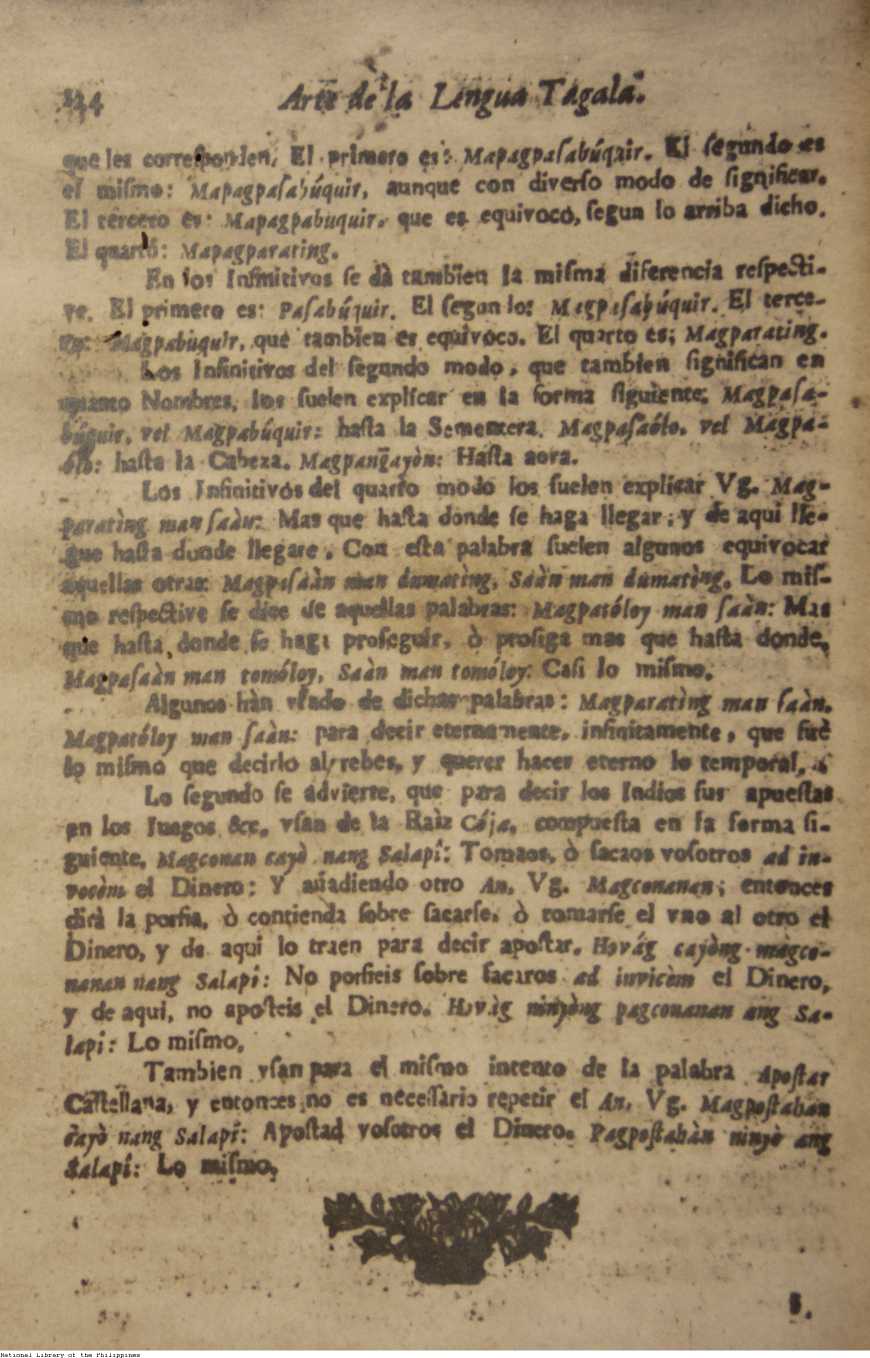 Arte de la Lengua Tagala.
que les corresponden. El primero es: Mapagpaſabúquir. El ſegundo es
el miſmo: Mapagpaſabúquir, aunque con diverſo modo de ſignificar.
El tercero es: Mapagpabuquir, que es equivoco, ſegun lo arriba dicho.
El quarto: Mapagparating.
En los Infinitivos ſe dà tambien la miſma diferencia reſpecti-
ve. El primero es: Paſabúquir. El ſegundo: Magpaſabúquir. El terce-
ro: Magpabuquir, que tambien es equivoco. El quarto es; Magparating.
Los Infinitivos del ſegundo modo, que tambien ſignifican en
quanto Nombres, los ſuelen explicar en la forma ſiguiente; Magpaſa-
búquir, vel Magpabúquir: haſta la Sementera. Magpaſaólo, vel Magpa-
ólo: haſta la Cabeza. Magpang̃ayòn: Haſta aora.
Los Infinitivos del quarto modo los ſuelen explicar Vg. Mag-
paratìng man ſaàn: Mas que haſta donde ſe haga llegar, y de aqui lle-
gue haſta donde llegare. Con eſta palabra ſuelen algunos equivocar
aquellas otras: Magpaſaàn man dumatìng, Saàn man dumatìng. Lo miſ-
mo reſpective ſe dice de aquellas palabras: Magpatóloy man ſaàn: Mas
que haſta donde ſe haga proſeguir, ò proſiga mas que haſta donde,
Magpaſaàn man tomóloy, Saàn man tomóloy: Caſi lo miſmo.
Algunos hàn vſado de dichas palabras: Magparatìng man ſaàn,
Magpatóloy man ſaàn: para decir eternamente, infinitamente, que fuè
lo miſmo que decirlo al rebes, y querer hacer eterno lo temporal.
Lo ſegundo ſe advierte, que para decir los Indios ſus apueſtas
en los Juegos &c. vſan de la Raìz Cója, compueſta en la forma ſi-
guiente, Magconan cayò nang Salapî: Tomaos, ò ſacaos voſotros ad in-
vocèm el Dinero: Y añadiendo otro An. Vg. Magconanan; entonces
dirà la porfia, ò contienda ſobre ſacarſe, ò tomarſe el vno al otro el
Dinero, y de aqui lo traen para decir apoſtar. Hovág cayòng magco-
nanan nang Salapî: No porfieis ſobre ſacaros ad invicèm el Dinero,
y de aqui, no apoſteis el Dinero. Hovàg ninyòng pagconanan ang Sa-
lapî: Lo miſmo.
Tambien vſan para el miſmo intento de la palabra Apoſtar
Caſtellana, y entonces no es neceſſario repetir el An. Vg. Magpoſtahan
cayò nang Salapî: Apoſtad voſotros el Dinero. Pagpoſtahàn ninyò ang
Salapî: Lo miſmo.